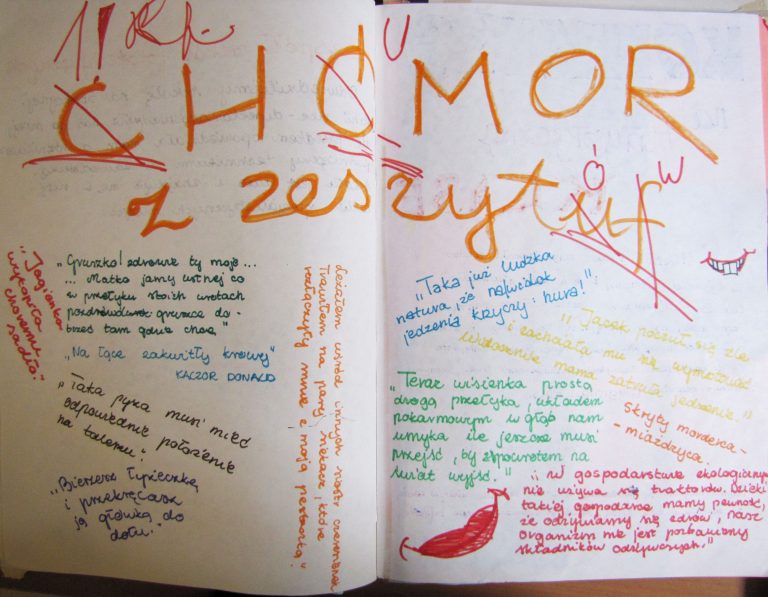 U
CHOMOR
Ó W
z zeszytuf
"Jagienka
wytopiła
choremu
sadło."
"Gruszko! zdrowie ty moje...
... Matko jamy ustnej co
w przełyku stoisz wrotach
gruszce do-
trzeć tam gdzie chcę."
"Na łące zakwitły krowy"
KACZOR DONALD
"Taka pyza musi mieć
odpowiednie położenie
na talerzu."
"Bierzesz łyżeczkę
i przekręcasz
ją główką do
dołu."
Leżałem wśród innych
Trafiłem na parę siekaczy, które
rozłączyły mnie z moją pestką."
"Taka już ludzka
natura, że na widok
jedzenia krzyczy: hura!"
"Jacek poczuł się źle
i zachciało mu się wymiotować
Widocznie mama zatruła jedzenie."
"Teraz wisienka prostą
drogą przełyka, układem
pokarmowym w głąb nam
umyka ile jeszcze musi
przejść, by z powrotem na
świat wyjść."
Skryty morderca -
- miażdżyca.
"W gospodarstwie ekologicznym
nie używa się traktorów. Dzięki
takiej gospodarce mamy pewność,
że odżywiamy się zdrowo, nasz
organizm nie jest pozbawiony
składników odżywczych."